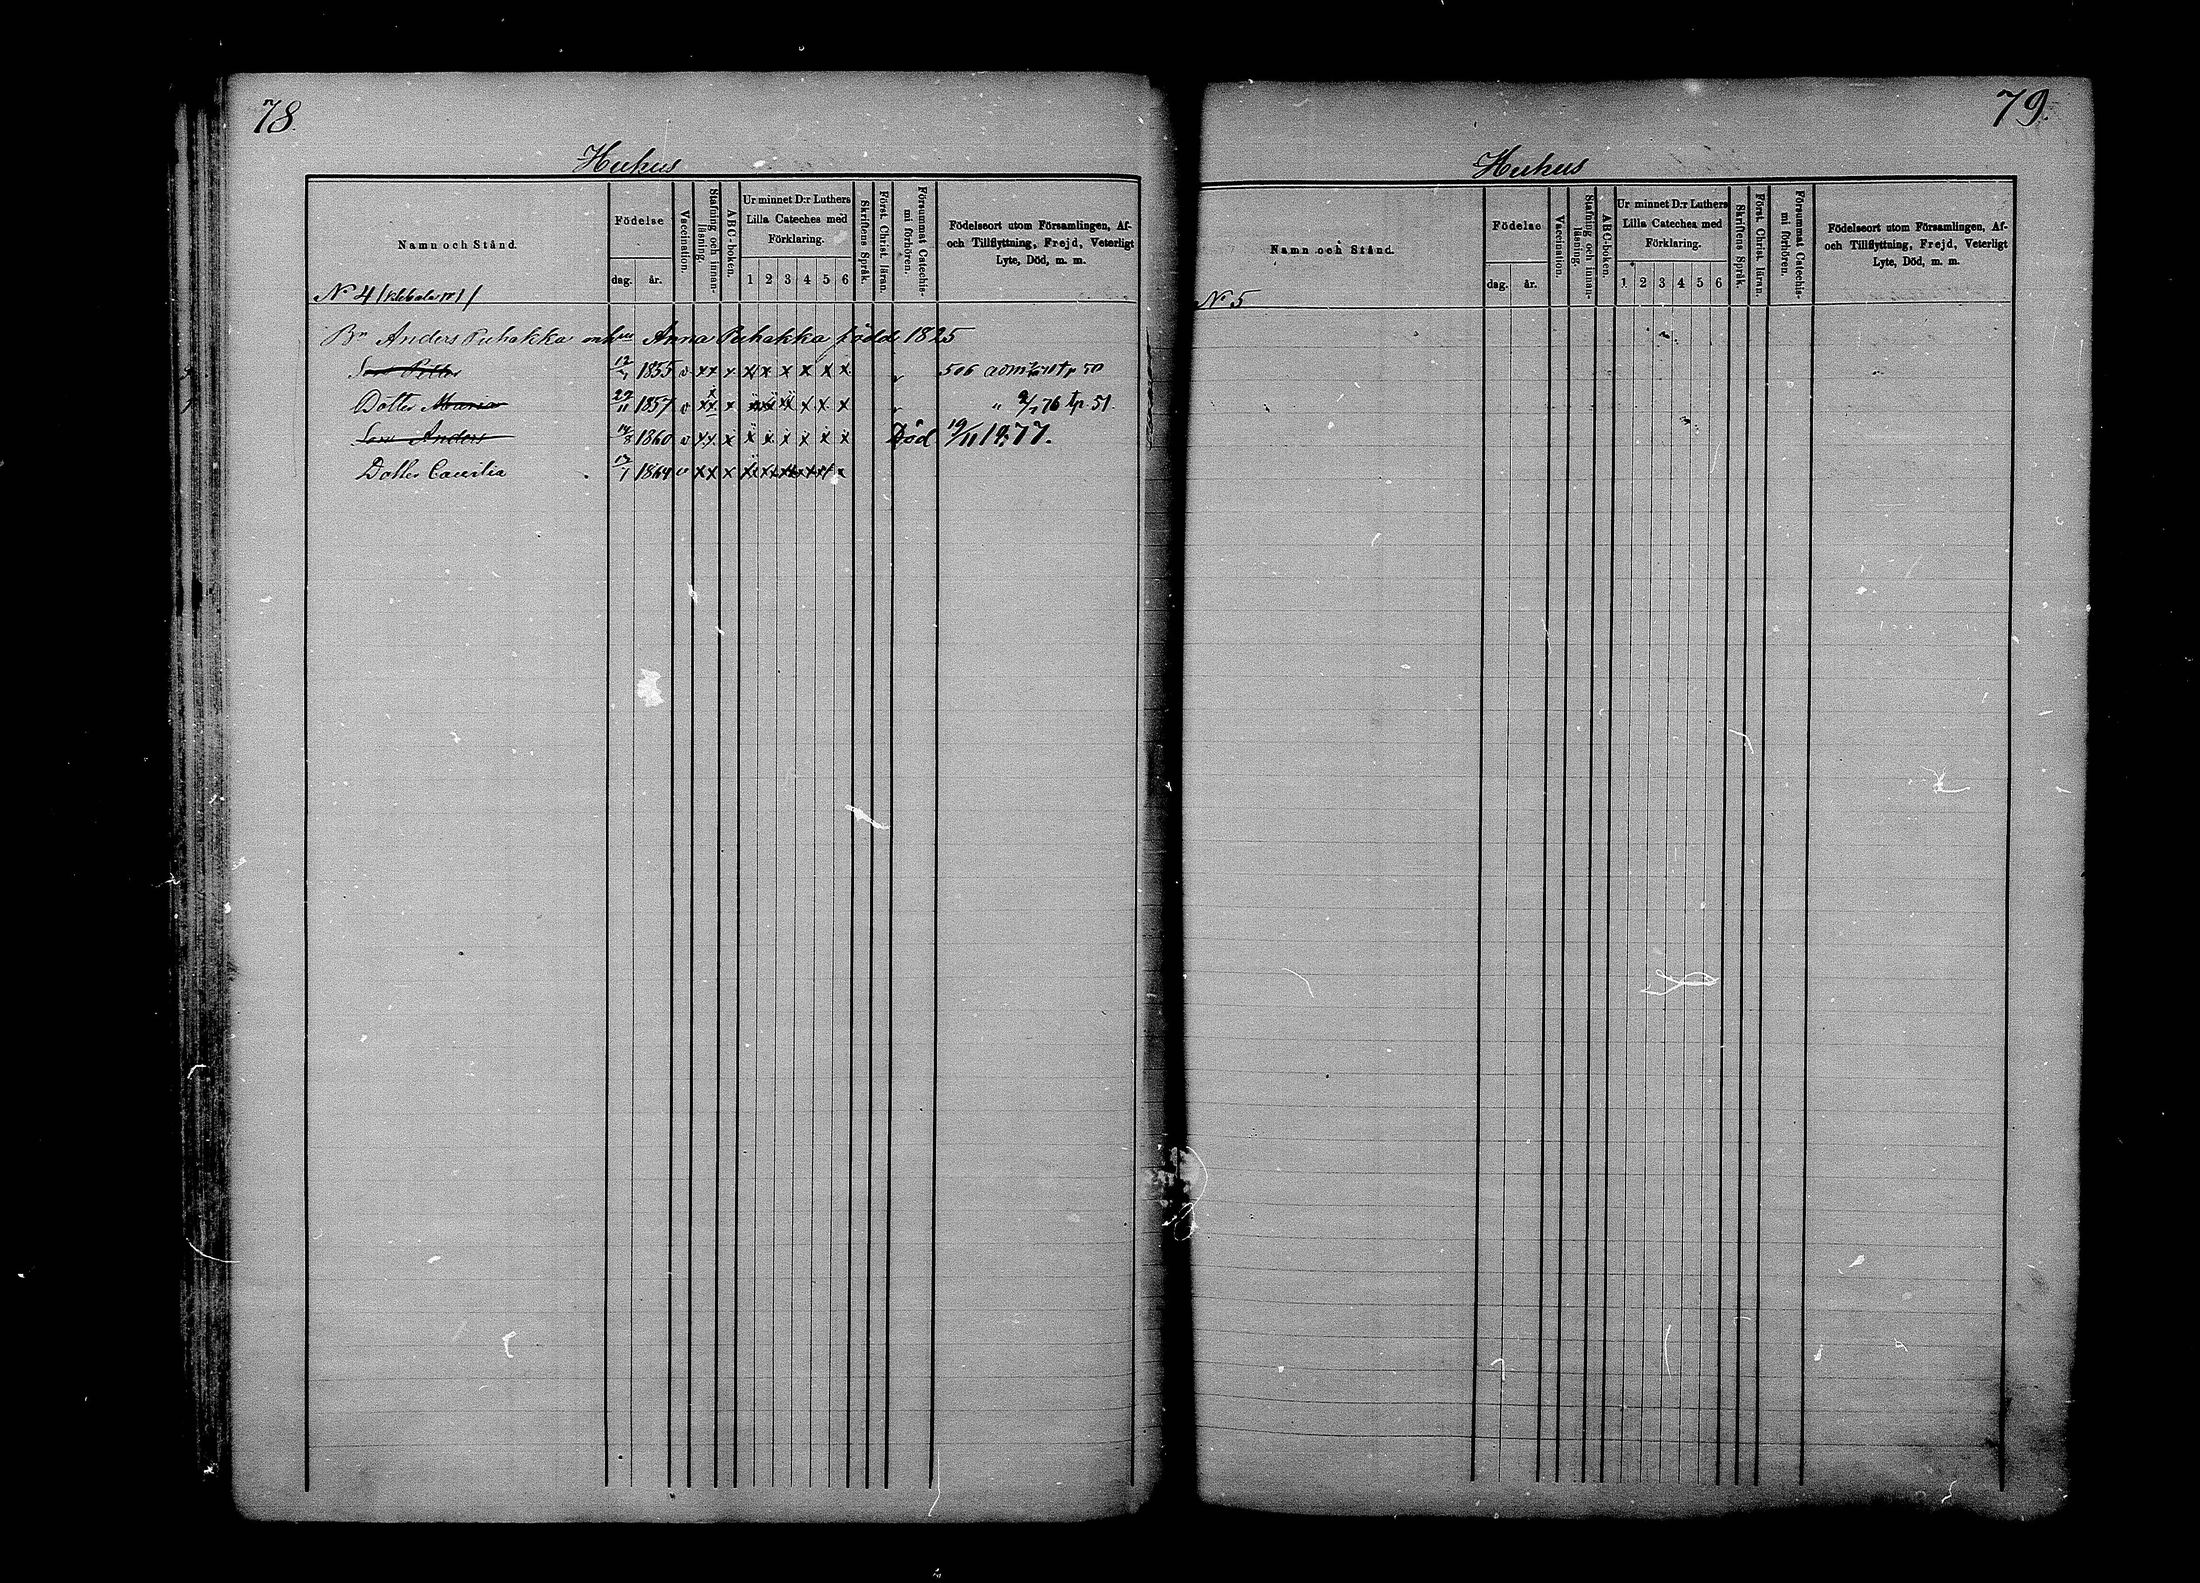 78
Huhus
Namn och Stånd.
Födelse
dag.
år.
Vaccination.
Stafning och innanläsning.
ABC-boken.
Ur minnet D:r Luthers
Lilla Cateches med
Förklaring.
1 2 3 4 5 6
Skriftens Språk.
Först. Christ. läran.
Försummat Catechismi förhören.
Födelseort utom Församlingen, Af-
och Tillflyttning, Frejd, Veterligt
Lyte, Död, m. m.
No 4
Bn Anders Puhakka Anna Puhakka född 1825
Son Petter 12/4 1855 v x x x x x x x x x 506
Dotter Maria 29/11 1857 v x x x x x x x x x " 2/7 76 tp 51.
Son Anders 14/8 1860 v x x x x x x x x x Död 19/11 1877.
Dotter Caecilia 13/1 1864 v x x x x x x x x x
79.
Huhus
Namn och Stånd.
Födelse
dag.
år.
Vaccination.
Stafning och innanläsning.
ABC-boken.
Ur minnet D:r Luthers
Lilla Cateches med
Förklaring.
1 2 3 4 5 6
Skriftens Språk.
Först. Christ. läran.
Försummat Catechismi förhören.
Födelseort utom Församlingen, Af-
och Tillflyttning, Frejd, Veterligt
Lyte, Död, m. m.
No 5